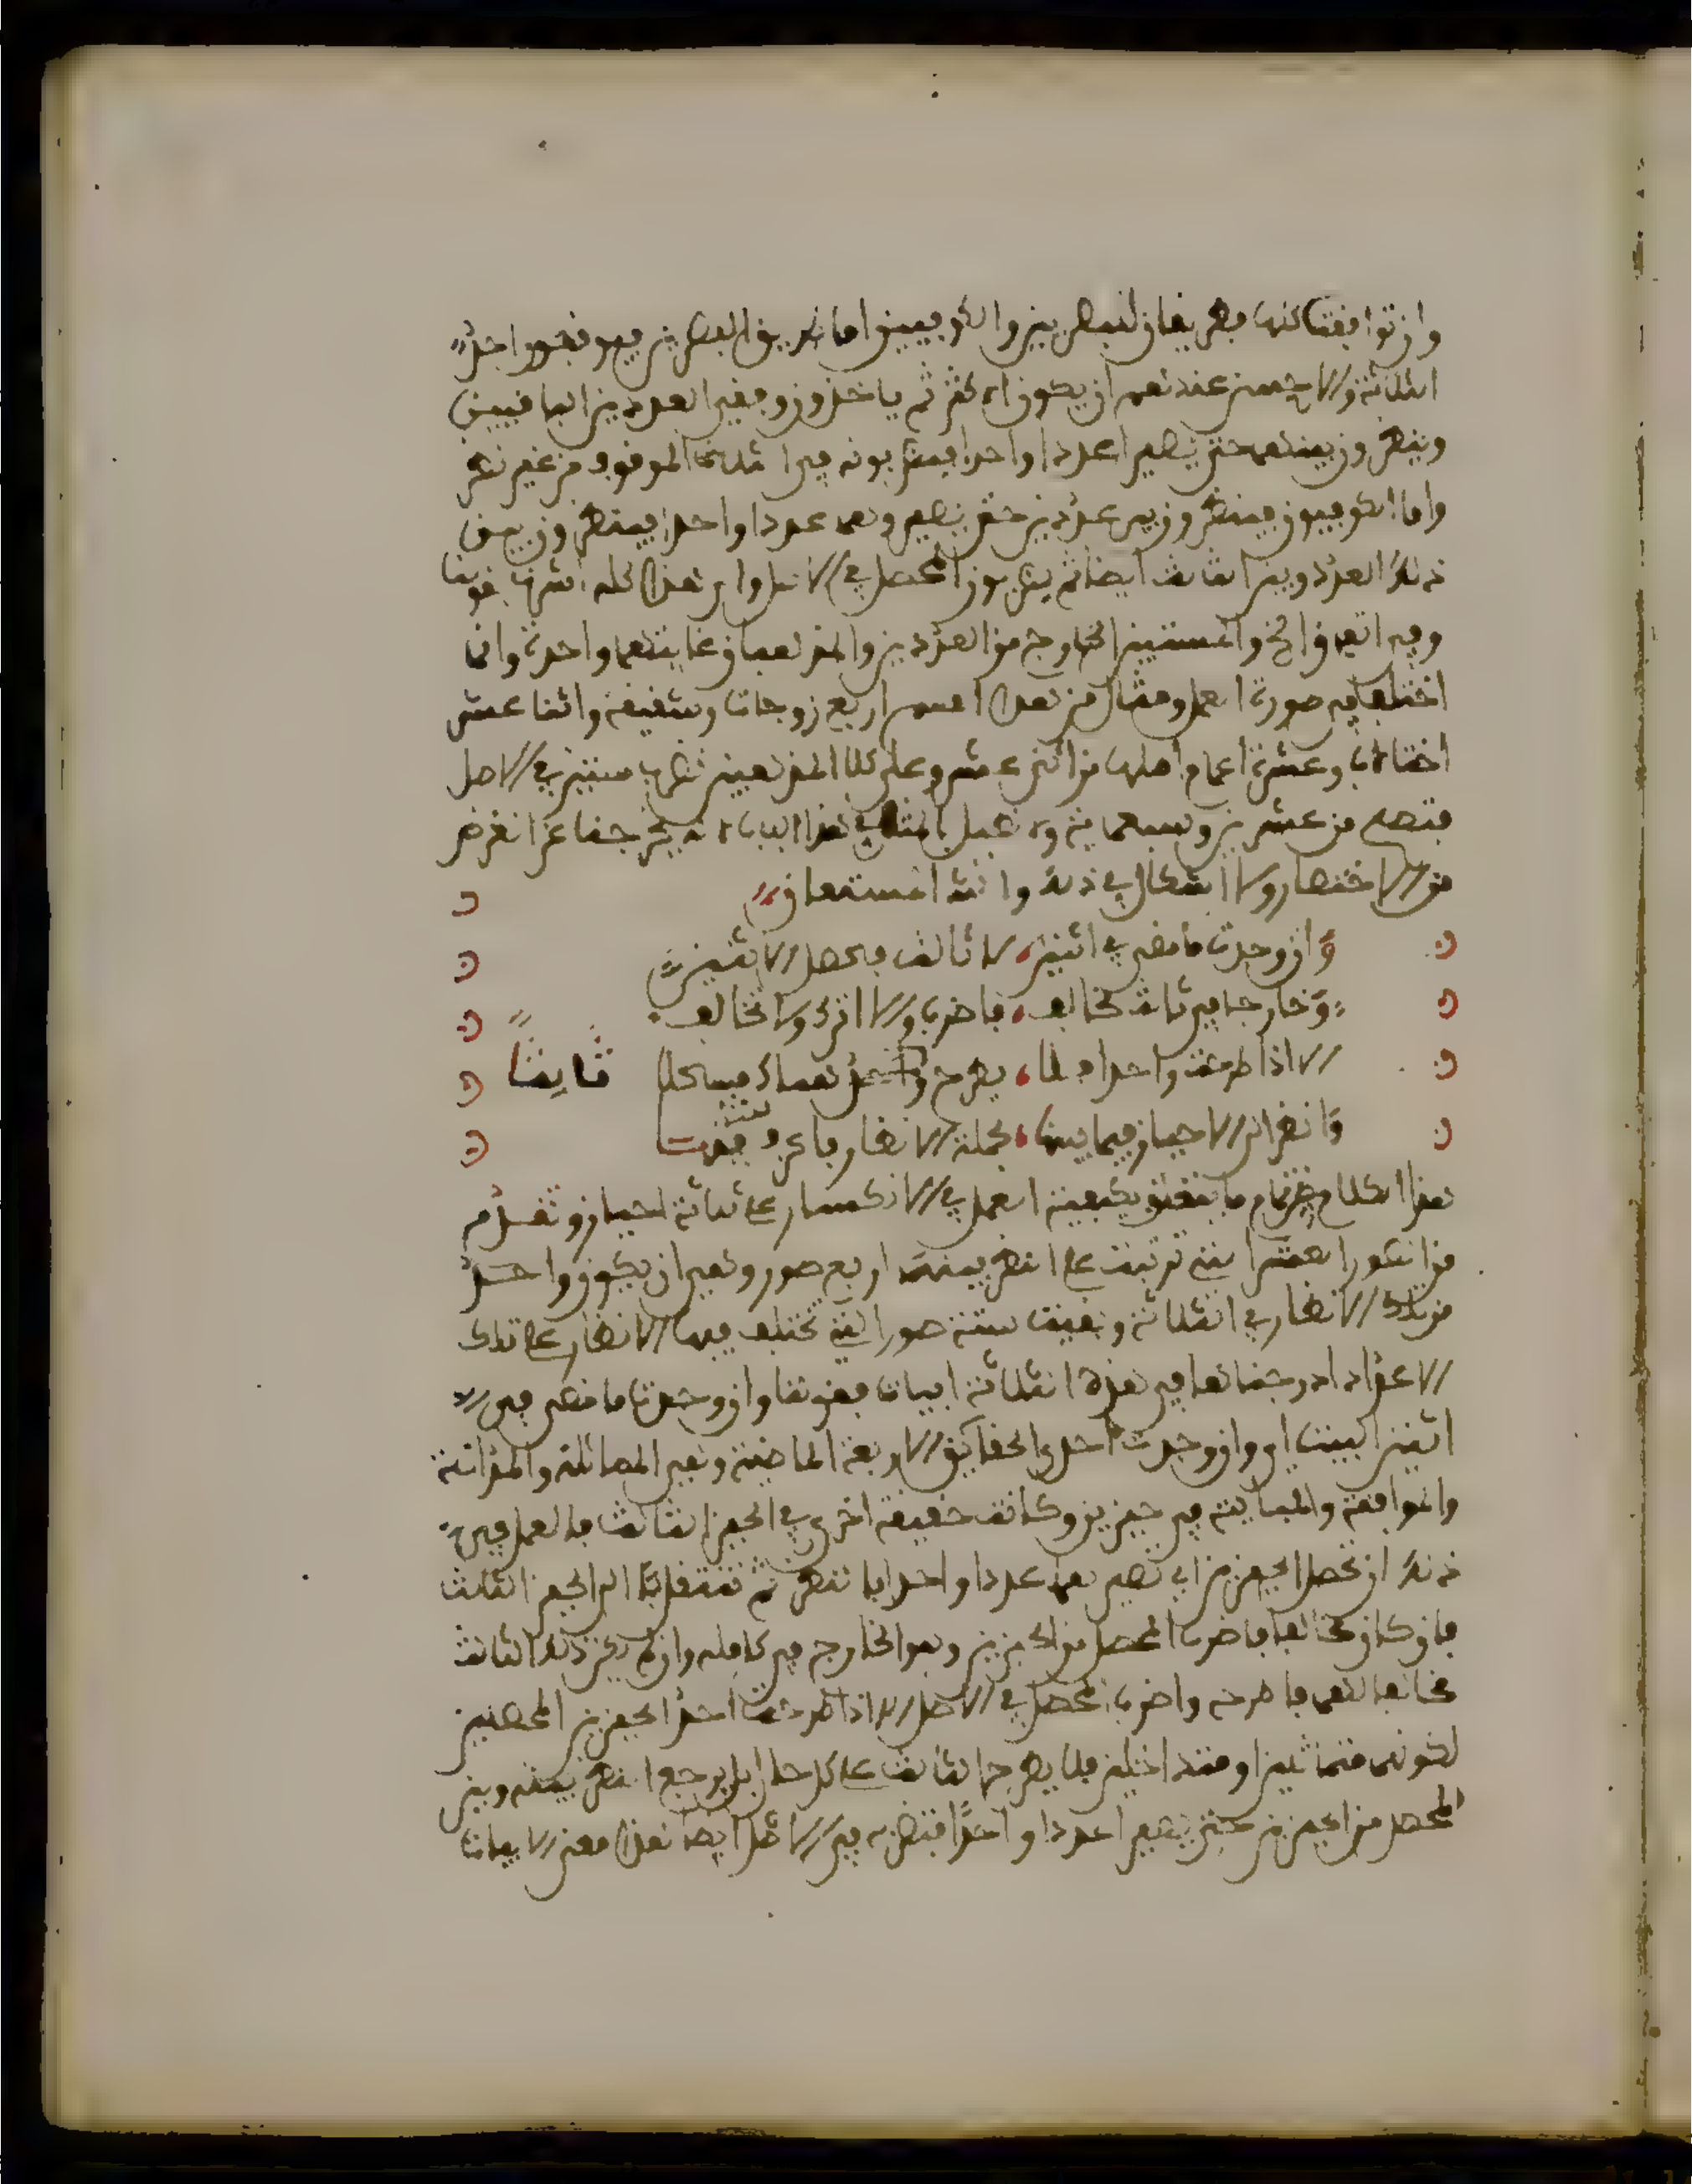 وان توافقت كلها فطريقان للبصريين والكوفيين اما طريق البصريين فهو قبوا احد
الثلاثة والاحسن عندهم ان يكون اكثر ثم ياخذون وفقي العددين الباقيين
وينظرون بينهما حتى يصيرا عددا واحدا فيضربونه في الموقوف من غير نظر
واما الكوفيون فينظرون بين عددين حتى يصيرونهما عددا واحدا فينظرون بين
ذلك العدد وبين الثالث ايضا ثم يضربون المحصل في الاصل والى هذا كله اشرت بقولنا
وفيه اتفاق المسئلتين الخارج من العددين والمذهبان غايتهما واحدة وانما
اختلفا في صورة العمل ومثال من هذا القسم اربع زوجات وشقيقة واثنا عشر
اختا لاب وعشرة اعمام اصلها من اثني عشر وعلى كلا المذهبين تضرب ستين في الاصل
فتصح من عشرين وسبعمائة ولا نميل بالمثل في هذا الباب لانه يخرجنا عن الغرض
من الاختصار ولا اشكال في ذلك والله المستعان
وان وجدت ما مضى في اثنين لا ثالث فحصل الاثنين
وخارجا في ثالث تخالف فاضرب ولا اترك ولا تخالف
لا اذا طرحت واحدا فلا يطرح واحد هناك مسجلا ثالثا
وانظر الى الاحياز فيما بينها بجملة الانظار فاعرف
هذا الكلام من تمام ما يتعلق بكيفية العمل في الانكسار على ثلاثة احياز وتقدم
من الصور العشر التي ترتبت على النظر بينها اربع صور وهي ان يكون واحد
من تلك الانظار في الثلاثة وبقيت ستة صور التي تختلف فيها الانظار على تلك
الاعداد ادرجناها في هذه الثلاثة ابيات فقولنا وان وجدت ما مضى في
اثنين البيت اي وان وجدت احدى الحقائق الاربعة الماضية وهي المماثلة والمداخلة
والموافقة والمباينة في حيزين وكانت حقيقة اخرى في الحيز الثالث فالعمل في
ذلك ان تحصل الحيزين اي تصيرهما عددا واحدا بالنظر ثم تنتقل به الى الحيز الثالث
فان كان مخالفا فاضرب المحصل من الحيزين وهو الخارج في كامله وان لم يكن ذلك الثالث
مخالفا لهما فاطرحه واضرب المحصل في الاصل لا اذا طرحت احد الحيزين المحصلين
لكونهما متماثلين او متداخلين فلا يطرح الثالث على كل حال بل يرجع النظر بينه وبين
المحصل من الحيزين حتى يصيرا عددا واحدا فتضربه في الاصل ايضا هذا معنى الابيات